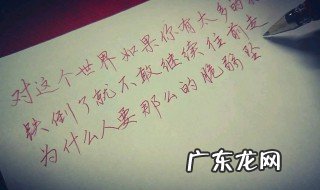 对这个世界如果你有太多的
跌倒了就不敢继续往前走
为什么人要那么的脆弱 坠
广东龙网